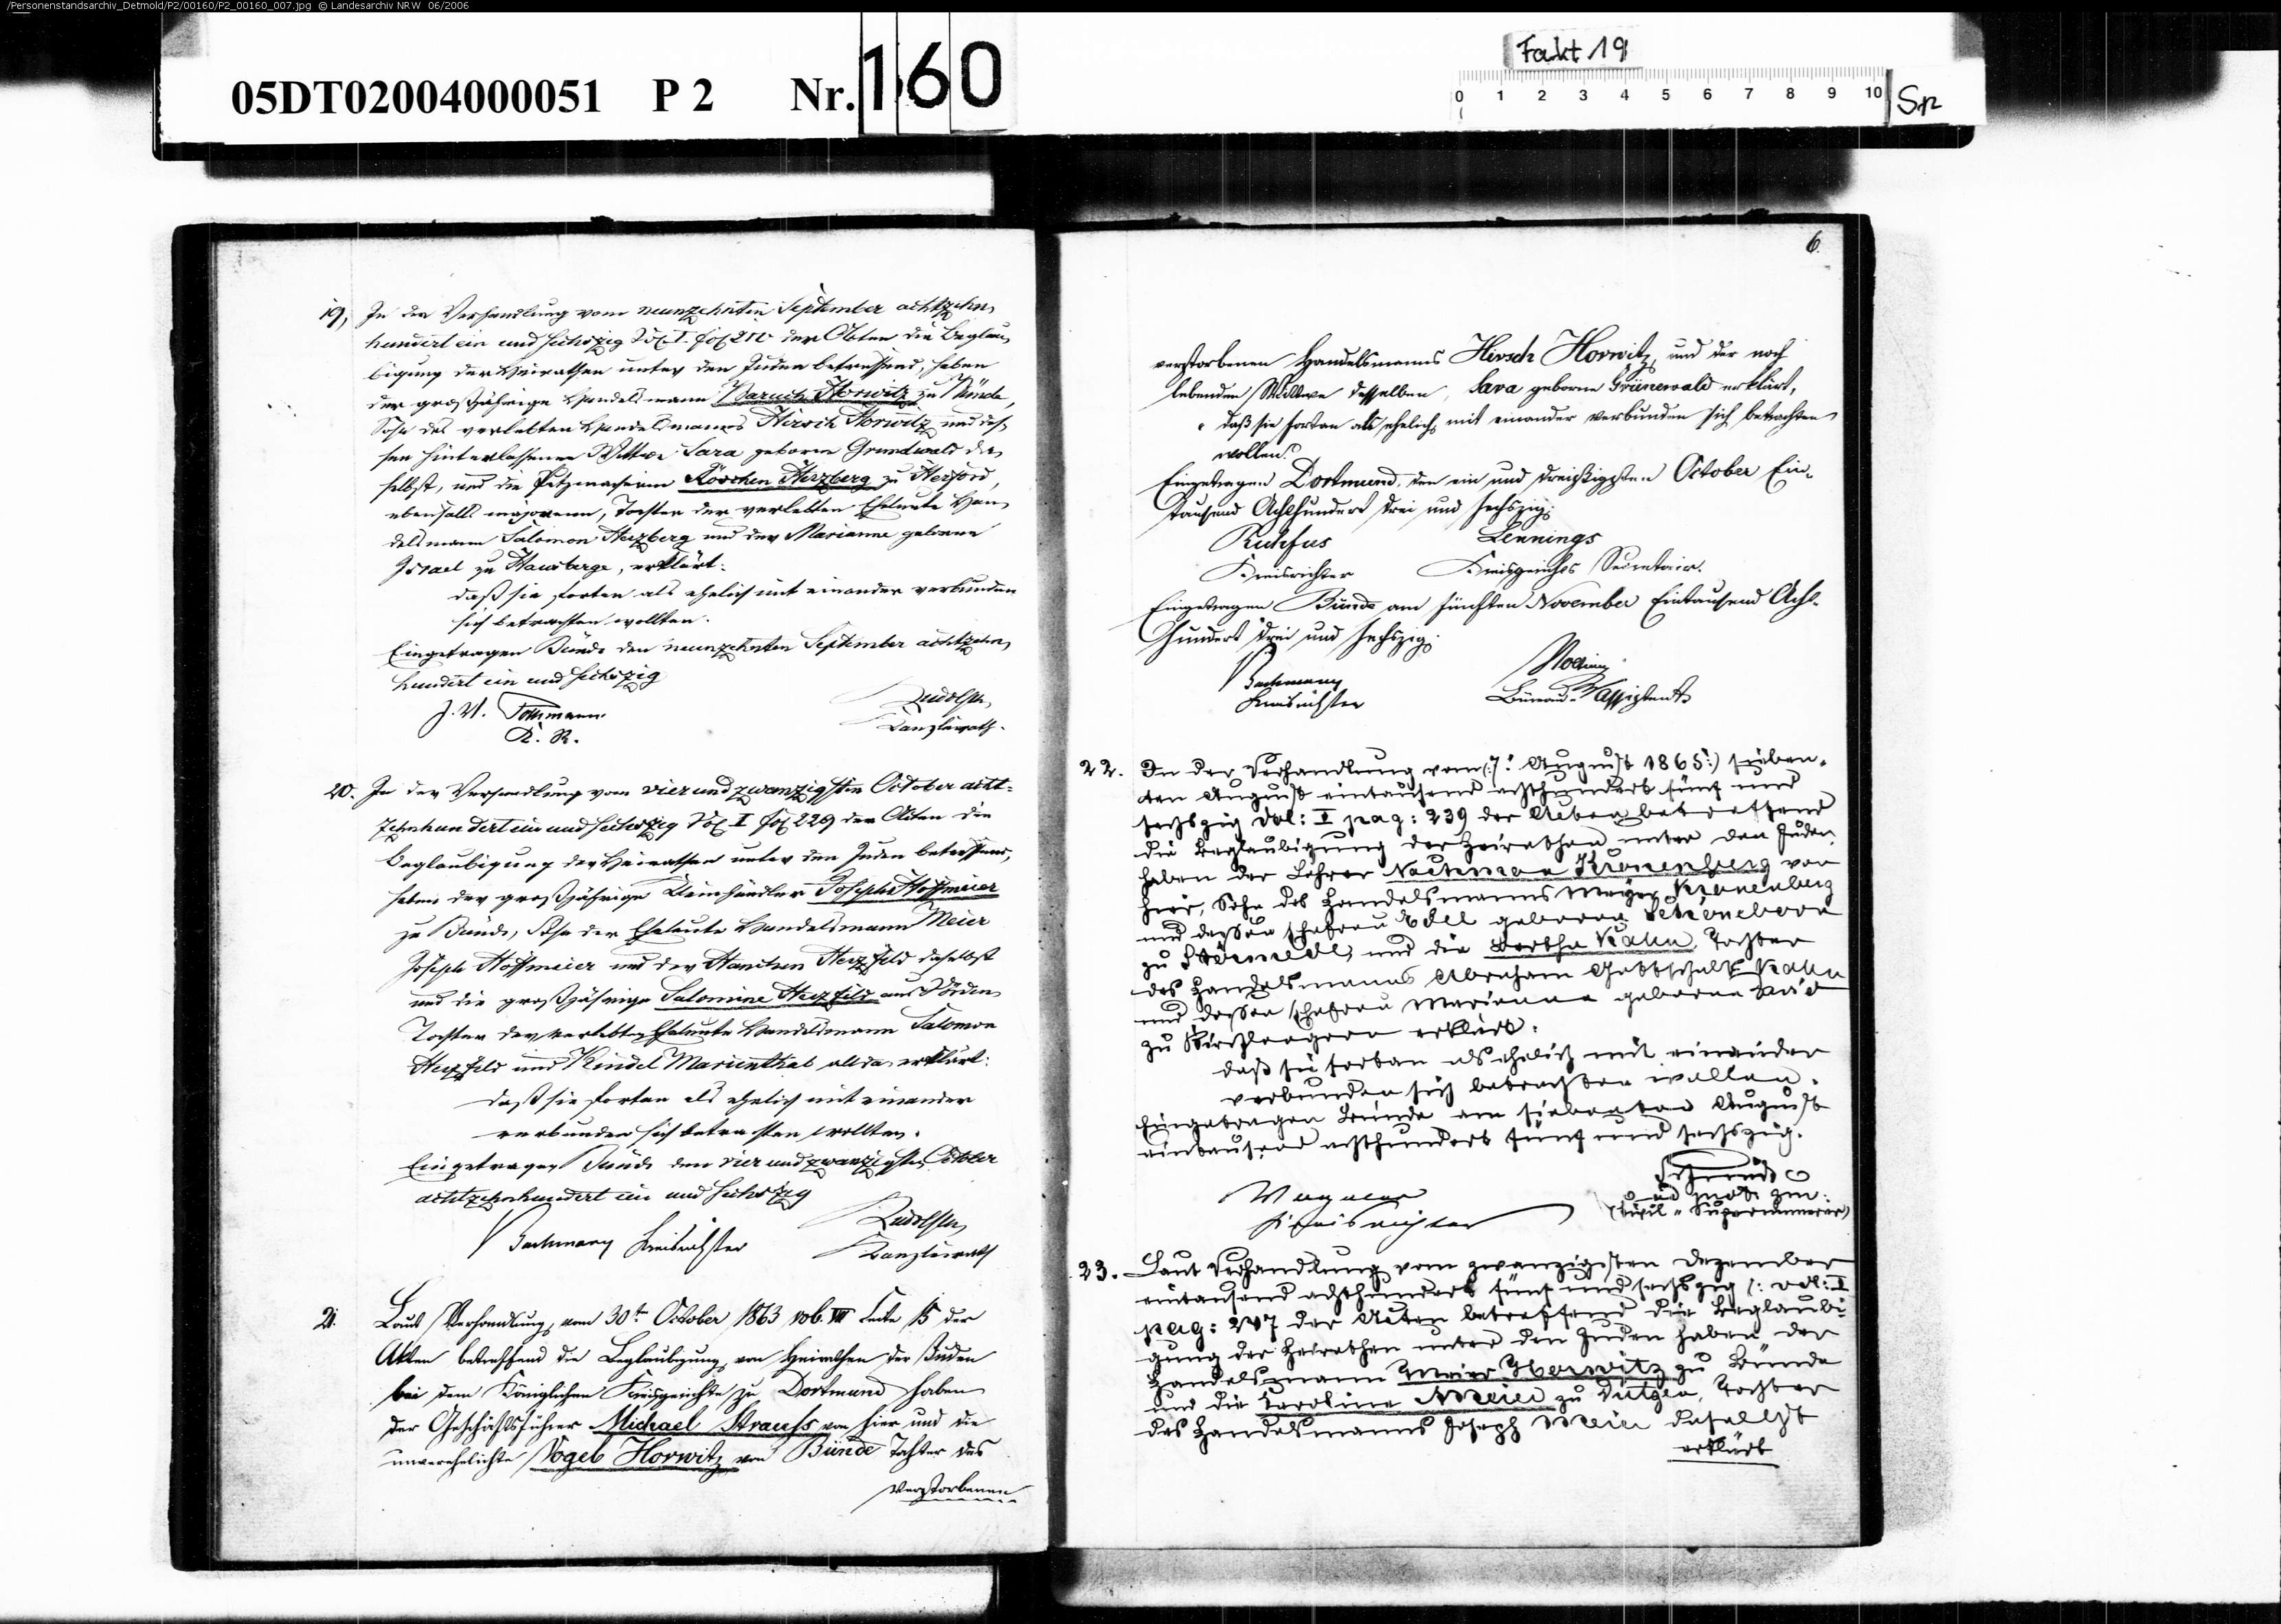 /Personenstandsarchiv_Detmold/P2/00160/P2_00160_007.jpg © Landesarchiv NRW 06/2006
05DT02004000051 P 2 Nr. 160
Fakt 19
0 1 2 3 4 5 6 7 8 9 10
19, In der Verhandlung vom neunzehnten September achtzehn
hundert ein und sechszig Vol. I. fol. 210 der Akten die Beglau
bigung der Heirathen unter den Juden betreffend, haben
der großjährige Handelsmann Baruch Horwitz zu Bünde,
Sohn des verlebten Handelsmanns Hirsch Horwitz und des
sen hinterlassenen Wittwe Sara geborne Grundwald da
selbst, und die Putzmacherin Röschen Herzberg zu Herford,
ebenfalls majorenn, Tochter der verlebten Eheleute Han
delsmann Salomon Herzberg und der Marianne geborene
Israel zu Hausberge, erklärt:
daß sie fortan als ehelich mit einander verbunden
sich betrachten wollten.
Eingetragen Bünde den neunzehnten September achtzehn
hundert ein und sechszig
J. V.
K. R.
Kanzleirath.
20. In der Verhandlung vom vier und zwanzigsten October acht-
zehnhundert ein und sechszig Vol. I fol. 229 der Akten die
Beglaubigung der Heirathen unter den Juden betreffend,
haben der großjährige Kleinhändler Joseph Hoffmeier
zu Bünde, Sohn der Eheleute Handelsmann Meier
Joseph Hoffmeier und der Hanchen Herzfeld daselbst
und die großjährige Salomine Herzfeld aus Vörden
Tochter der verlebten Eheleute Handelsmann Salomon
Herzfeld und Kendel Marienthal allda, erklärt:
daß sie fortan als ehelich mit einander
verbunden sich betrachten wollten.
Eingetragen Bünde den vier und zwanzigsten October
achtzehnhundert ein und sechszig
Bachmann Kreisrichter
Kanzleirath
21. Laut Verhandlung, vom 30ten October 1863 vol. VII Seite 15 der
Akten betreffend die Beglaubigung von Heirathen der Juden
bei dem Königlichen Kreisgerichte zu Dortmund haben
der Geschäftsführer Michael Strauss von hier und die
unverehelichte Vogel Horwitz von Bünde Tochter des
verstorbenen
6.
verstorbenen Handelsmanns Hirsch Horwitz, und der noch
lebenden Wittwe desselben, Sara geborne Grünewald erklärt,
daß sie fortan als ehelich mit einander verbunden sich betrachten
wollen.
Eingetragen Dortmund, den ein und dreißigsten October Ein-
tausend Achthundert drei und sechszig.
Kuhfus Lennings
Kreisrichter Kreisgerichts Secretair.
Eingetragen Bünde am fünften November Eintausend Acht-
hundert drei und sechszig.
Bachmann
Kreisrichter Büreau-Assistent
22. In der Verhandlung vom (:7: August 1865:) sieben-
ten August eintausend achthundert fünf und
sechszig Vol: I pag: 239 der Acten betreffend
die Beglaubigung der Heirathen unter den Juden,
haben der Lehrer Nachman Kronenberg von
hier, Sohn des Handelsmanns Meyer Kronenberg
und dessen Ehefrau Edel geborene Schöneboon
zu Störmede, und die Bertha Kahn, Tochter
des Handelsmanns Abraham Gottschalk Kahn
und dessen Ehefrau Marianne geborene
zu Kirchlengern erklärt:
daß sie fortan als ehelich mit einander
verbunden sich betrachten wollen.
Eingetragen Bünde am siebenten August
eintausend achthundert fünf und sechszig.
Wagener
Kreisrichter
Schmidt
(Civil-Supernumerar)
23. Laut Verhandlung vom zwanzigsten Dezember
eintausend achthundert fünf und sechszig /: vol: I
pag: 247 der Acten betreffend die Beglaubi
gung der Heirathen unter den Juden haben der
Handelsmann Meier Horwitz zu Bünde
und die Caroline Meier zu Dützen, Tochter
des Handelsmanns Joseph Meier daselbst
erklärt